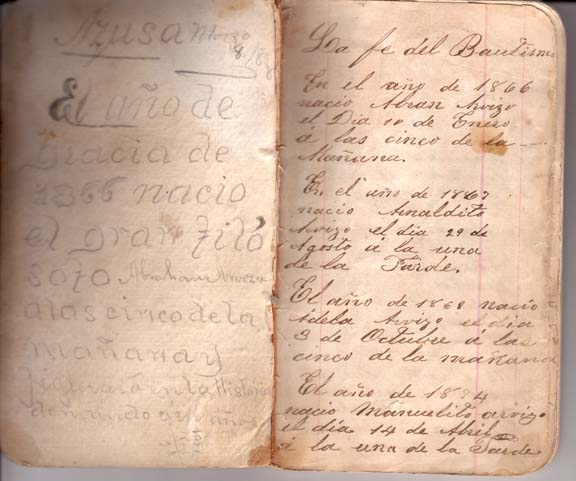 Azusa Marzo
8/88
El año de
gracia de
1866 nacio
el gran filó
sofo Abraham Arvizo
a las cinco de la
mañana y
figurará en la Historia
del mundo años
La fe del Bautismo
En el año de 1866
nacio Abran Arvizo
el Dia 10 de Enero
á las cinco de la
Mañana.
En el año de 1867
nacio Arnaldito
Arvizo el dia 29 de
Agosto á la una
de la Tarde.
El año de 1868 nacio
Adela Arvizo el dia
3 de Octubre á las
cinco de la mañana
El año de 1874
nacio Manuelito arvizo
el dia 14 de Abril
á la una de la Tarde